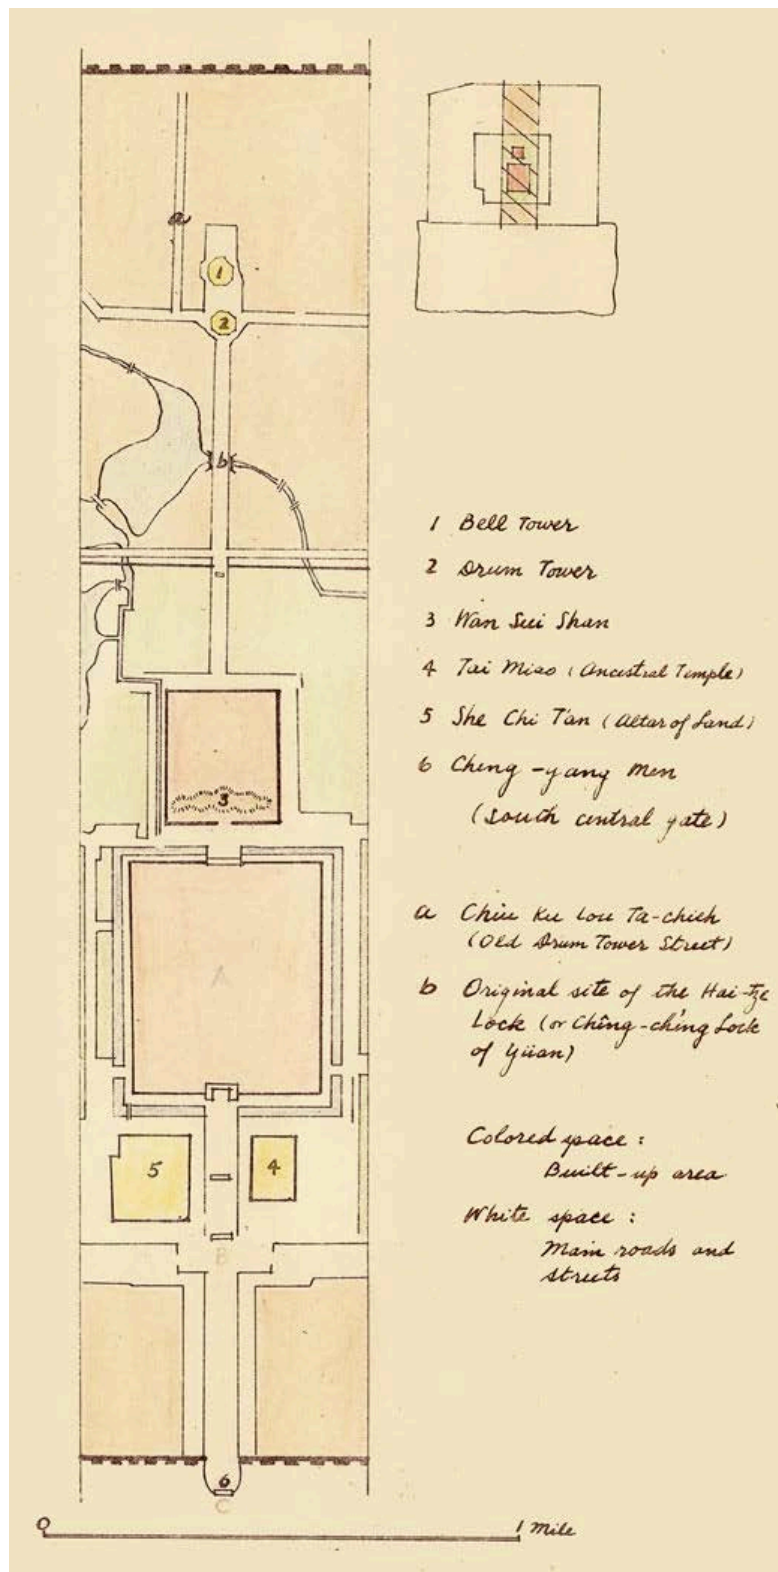 a
1
2
b
3
A
5
4
B
6
C
0 1 Mile
1 Bell Tower
2 Drum Tower
3 Wan Sui Shan
4 Tai Miao (Ancestral Temple)
5 She Chi T'an (Altar of Land)
6 Cheng-yang Men
(South central gate)
a Chiu Ku Lou Ta-chieh
(Old Drum Tower Street)
b Original site of the Hai-tze
Lock (or Chêng-ch'ing Lock
of Yüan)
Colored space:
Built-up area
White space:
Main roads and
streets